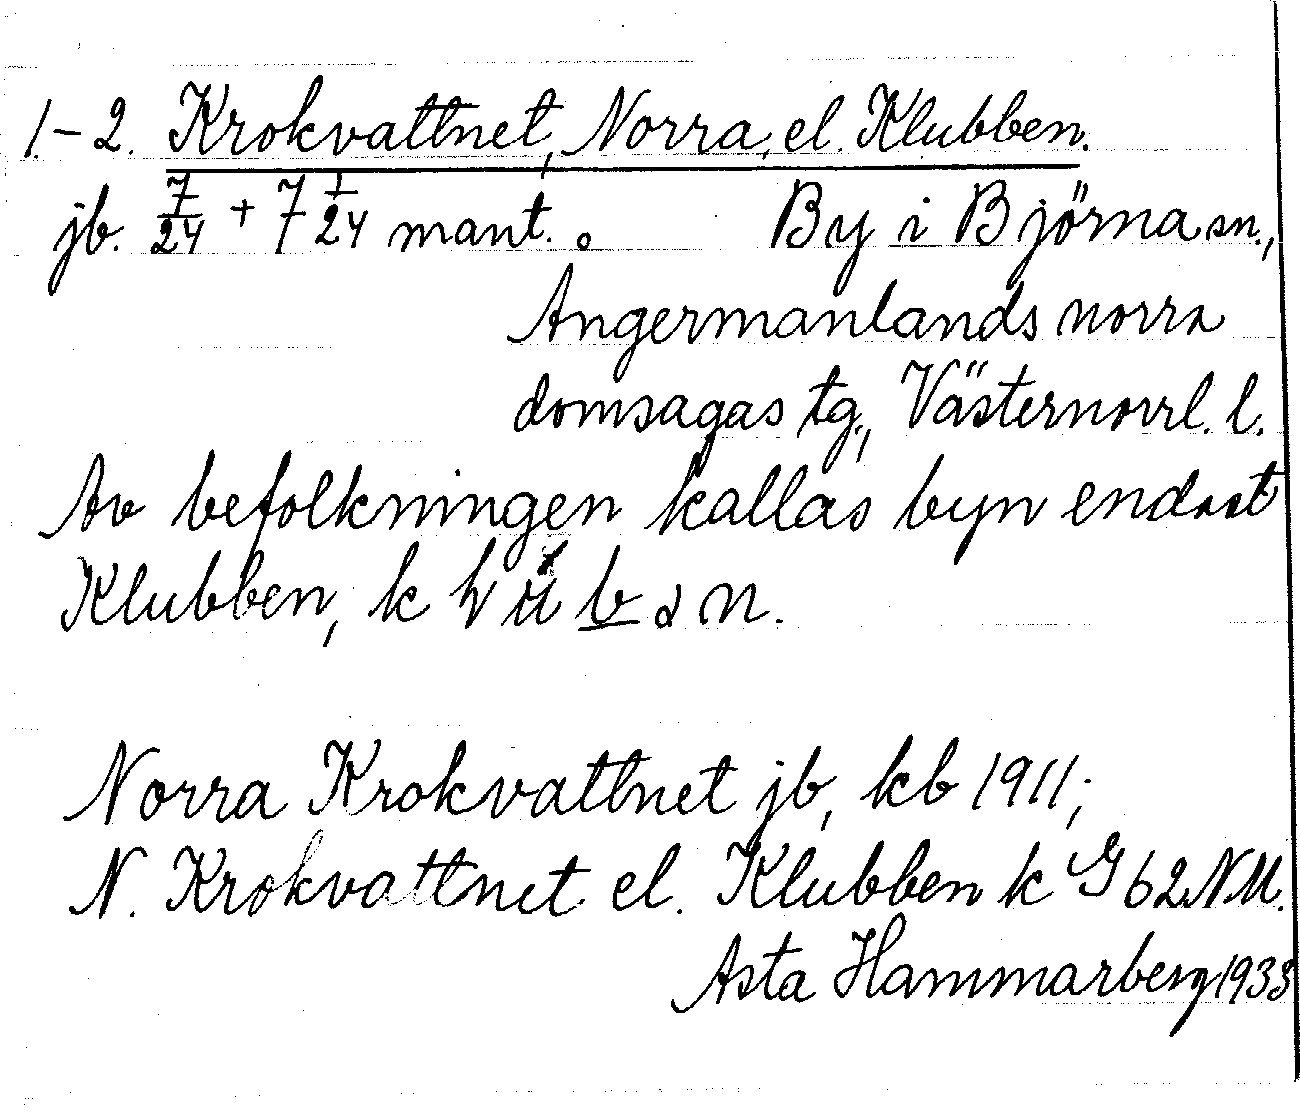 1.-2. Krokvattnet, Norra, el. Klubben.
jb. 7/24 + 7 1/24 mant. By i Björna sn.,
Ångermanlands norra
domsagas tg., Västernorrl. l.
Av befolkningen kallas byn endast
Klubben,
Norra Krokvattnet jb, kb 1911;
N. Krokvattnet el. Klubben k G 62 NM.
Asta Hammarberg 1933